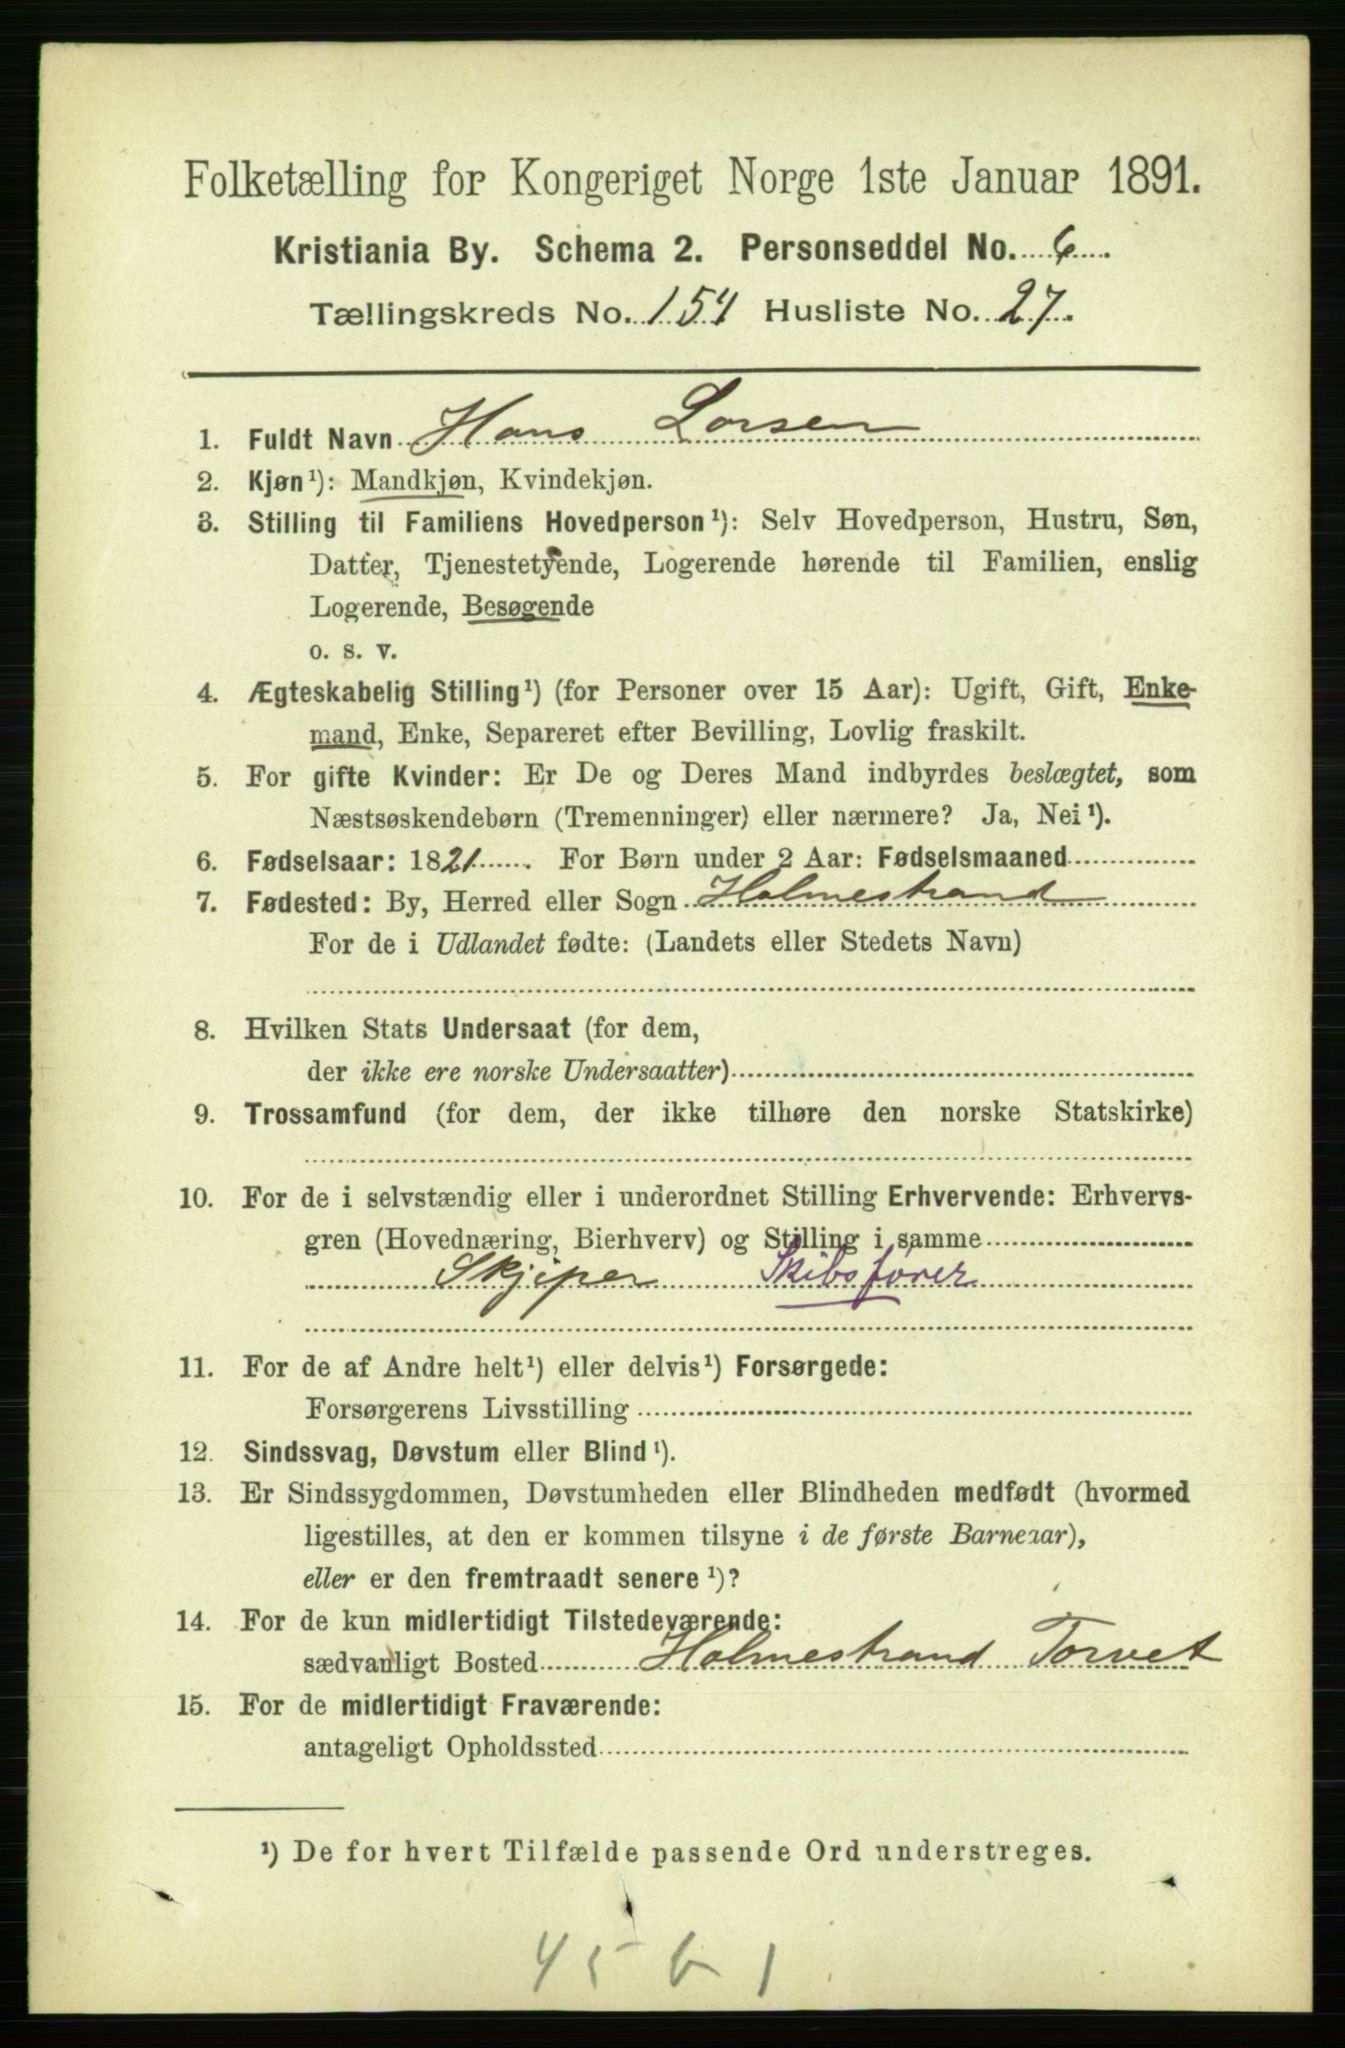 Folketælling for Kongeriget Norge 1ste Januar 1891.
Kristiania By. Schema 2. Personseddel No. 6.
Tællingskreds No. 154 Husliste No. 27.
1. Fuldt Navn Hans Larsen
2. Kjøn¹): Mandkjøn, Kvindekjøn.
3. Stilling til Familiens Hovedperson¹): Selv Hovedperson, Hustru, Søn,
Datter, Tjenestetyende, Logerende hørende til Familien, enslig
Logerende, Besøgende
o. s. v.
4. Ægteskabelig Stilling¹) (for Personer over 15 Aar): Ugift, Gift, Enke-
mand, Enke, Separeret efter Bevilling, Lovlig fraskilt.
5. For gifte Kvinder: Er De og Deres Mand indbyrdes beslægtet, som
Næstsøskendebørn (Tremenninger) eller nærmere? Ja, Nei¹).
6. Fødselsaar: 1821. For Børn under 2 Aar: Fødselsmaaned
7. Fødested: By, Herred eller Sogn Holmestrand
For de i Udlandet fødte: (Landets eller Stedets Navn)
8. Hvilken Stats Undersaat (for dem,
der ikke ere norske Undersaatter)
9. Trossamfund (for dem, der ikke tilhøre den norske Statskirke)
10. For de i selvstændig eller i underordnet Stilling Erhvervende: Erhvervs-
gren (Hovednæring, Bierhverv) og Stilling i samme
Skjiper Skibsfører
11. For de af Andre helt¹) eller delvis¹) Forsørgede:
Forsørgerens Livsstilling
12. Sindssvag, Døvstum eller Blind¹).
13. Er Sindssygdommen, Døvstumheden eller Blindheden medfødt (hvormed
ligestilles, at den er kommen tilsyne i de første Barneaar),
eller er den fremtraadt senere¹)?
14. For de kun midlertidigt Tilstedeværende:
sædvanligt Bosted Holmestrand Torvet
15. For de midlertidigt Fraværende:
antageligt Opholdssted
¹) De for hvert Tilfælde passende Ord understreges.
45 6 1